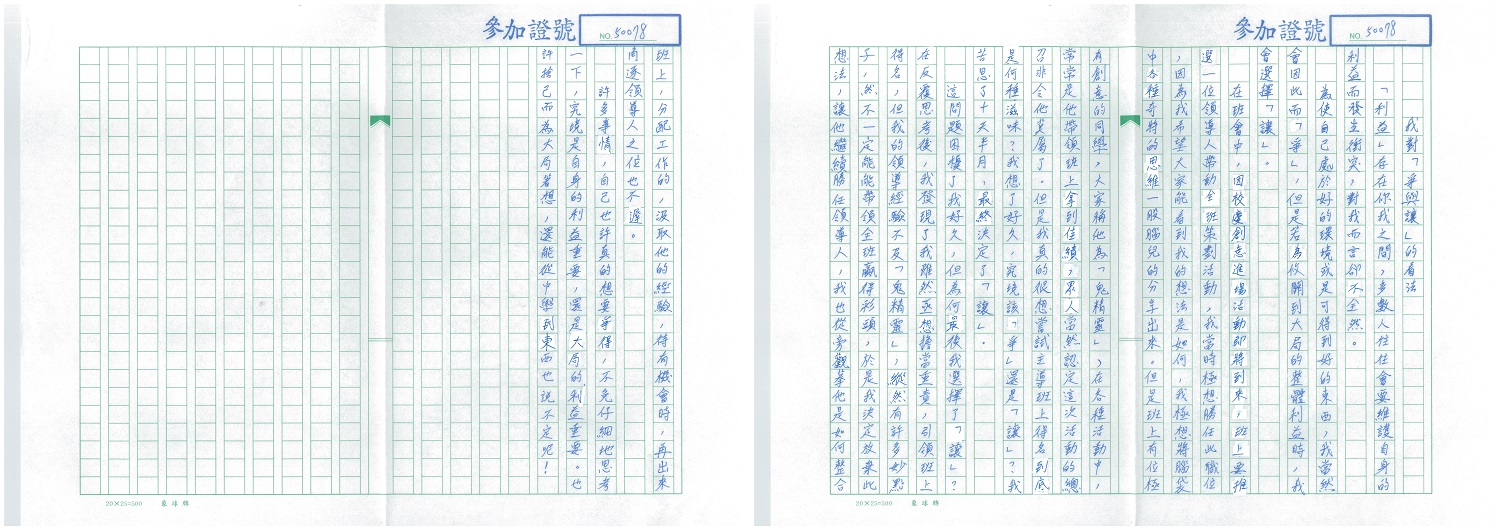 參加證號
NO. 50078
我對「爭與讓」的看法
「利益」存在你我之間，多數人往往會要維護自身的
利益而發生衝突，對我而言卻不全然。
為使自己處於好的環境或是可得到好的東西，我當然
會因此而「爭」，但是若為攸關到大局的整體利益時，我
會選擇「讓」。
在班會中，因校慶創意進場活動即將到來，班上要推
選一位領導人帶動全班策劃活動，我當時極想勝任此職位
，因為我希望大家能看到我的想法是如何，我極想將腦袋
中各種奇特的思維一股腦兒的分享出來。但是班上有位極
有創意的同學，大家稱他為「鬼精靈」，在各種活動中，
常常是他帶領班上拿到佳績，眾人當然認定這次活動的總
召非令他莫屬了。但是我真的很想嘗試主導班上得名到底
是何種滋味？我想了好久，究境該「爭」還是「讓」？我
苦思了十天半月，最終決定了「讓」。
這問題困擾了我好久，但為何最後我選擇了「讓」？
在反覆思考後，我發現了我雖然亟想擔當重責，引領班上
得名，但我的領導經驗不及「鬼精靈」，縱然有許多妙點
子，然不一定能能帶領全班贏得彩頭，於是我決定放棄此
想法，讓他繼續勝任領導人，我也從旁觀摹他是如何整合
參加證號
NO. 50078
班上，分配工作的，汲取他的經驗，待有機會時，再出來
角逐領導人之位也不遲。
許多事情，自己也許真的想要爭得，不免仔細地思考
一下，究境是自身的利益重要，還是大局的利益重要。也
許捨己而為大局著想，還能從中學到東西也說不定呢！
20×25=500
象球牌
20×25=500
象球牌